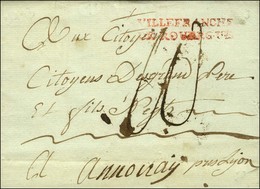 VILLEFRANCHE
DE ROUERGUE
Aux Citoyens
10
Citoyens Desgrand Pere
Et fils Negts
A Annonay pres Lyon